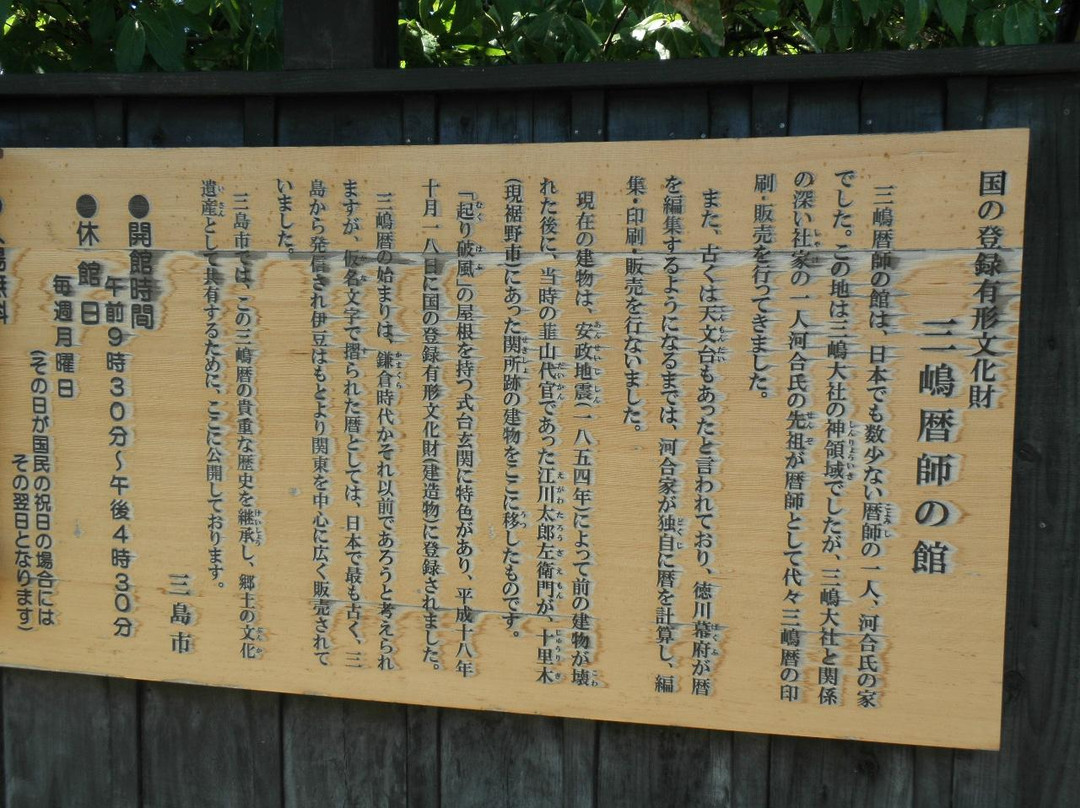 国の登録有形文化財
三嶋暦師の館
三嶋暦師の館は、日本でも数少ない暦師の一人、河合氏の家
でした。この地は三嶋大社の神領域でしたが、三嶋大社と関係
の深い社家の一人河合氏の先祖が暦師として代々三嶋暦の印
刷・販売を行ってきました。
また、古くは天文台もあったと言われており、徳川幕府が暦
を編集するようになるまでは、河合家が独自に暦を計算し、編
集・印刷・販売を行ないました。
現在の建物は、安政地震(一八五四年)によって前の建物が壊
れた後に、当時の韮山代官であった江川太郎左衛門が、十里木
(現裾野市)にあった関所跡の建物をここに移したものです。
「起り破風」の屋根を持つ式台玄関に特色があり、平成十八年
十月一八日に国の登録有形文化財(建造物)に登録されました。
三嶋暦の始まりは、鎌倉時代かそれ以前であろうと考えられ
ますが、仮名文字で摺られた暦としては、日本で最も古く、三
島から発信され伊豆はもとより関東を中心に広く販売されて
いました。
三島市では、この三嶋暦の貴重な歴史を継承し、郷土の文化
遺産として共有するために、ここに公開しております。
三島市
●開館時間
午前9時30分〜午後4時30分
●休館日
毎週月曜日
(その日が国民の祝日の場合には
その翌日となります)